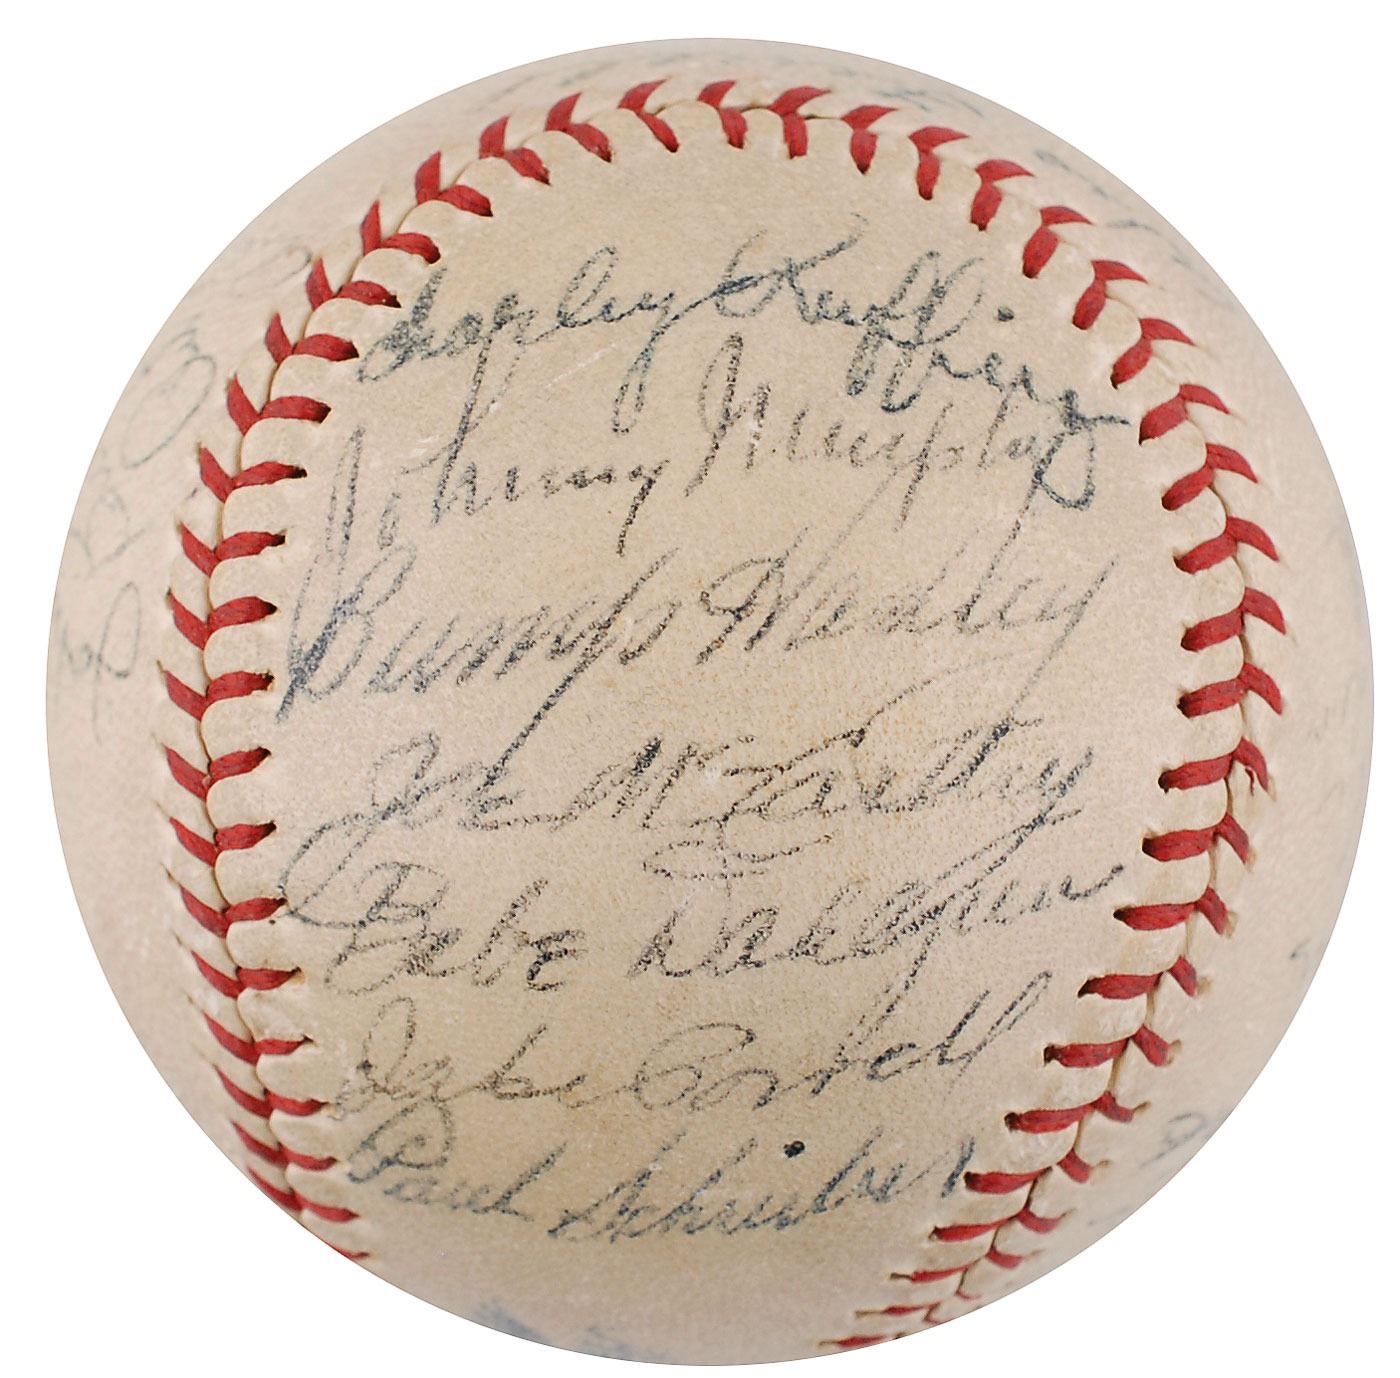 Charley Ruffing
Johnny Murphy
Bump Hadley
Joe McCarthy
Babe Dahlgren
Jake Powell
Paul Schreiber